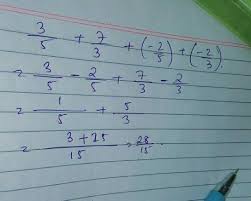 3/5 + 7/3 + (-2/5) + (-2/3)
= 3/5 - 2/5 + 7/3 - 2/3
= 1/5 + 5/3
= 3+25/15 = 28/15.